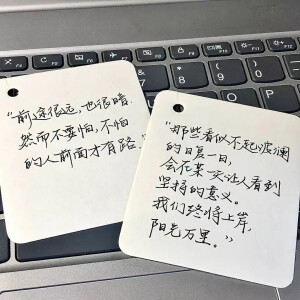 “前途很远，也很暗，
然而不要怕，不怕
的人前面才有路。
“那些看似不起波澜
的日复一日，
会在某一天让人看到
坚持的意义。
我们终将上岸，
阳光万里。”